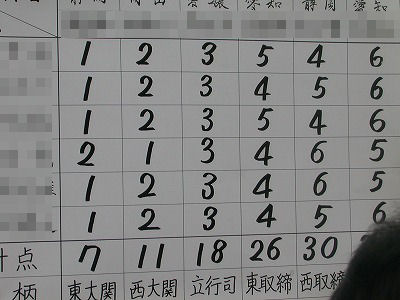 1 2 3 5 4 6
1 2 3 4 5 6
1 2 3 5 4 6
2 1 3 4 6 5
1 2 3 4 6 5
1 2 3 4 5 6
計点 7 11 18 26 30
柄 東大関 西大関 立行司 東取締 西取締